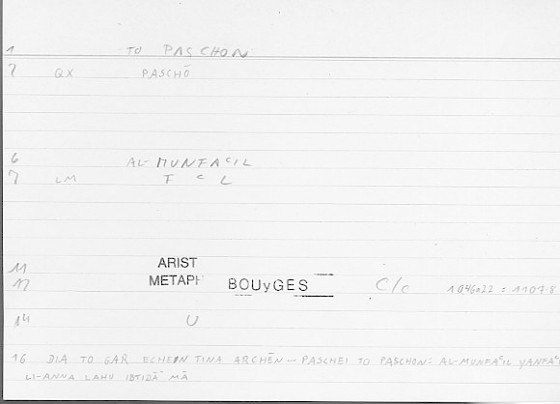 1 TO PASCHON
7 QX PASCHŌ
6 AL-MUNFAᶜIL
7 LM F ᶜ L
11 ARIST
12 METAPH BOUyGES C/c 1046a22 = 1107.8
14 U
16 DIA TO GAR ECHEIN TINA ARCHĒN – PASCHEI TO PASCHON: AL-MUNFAᶜIL YANFAᶜI
LI-ANNA LAHU IBTIDĀ' MĀ